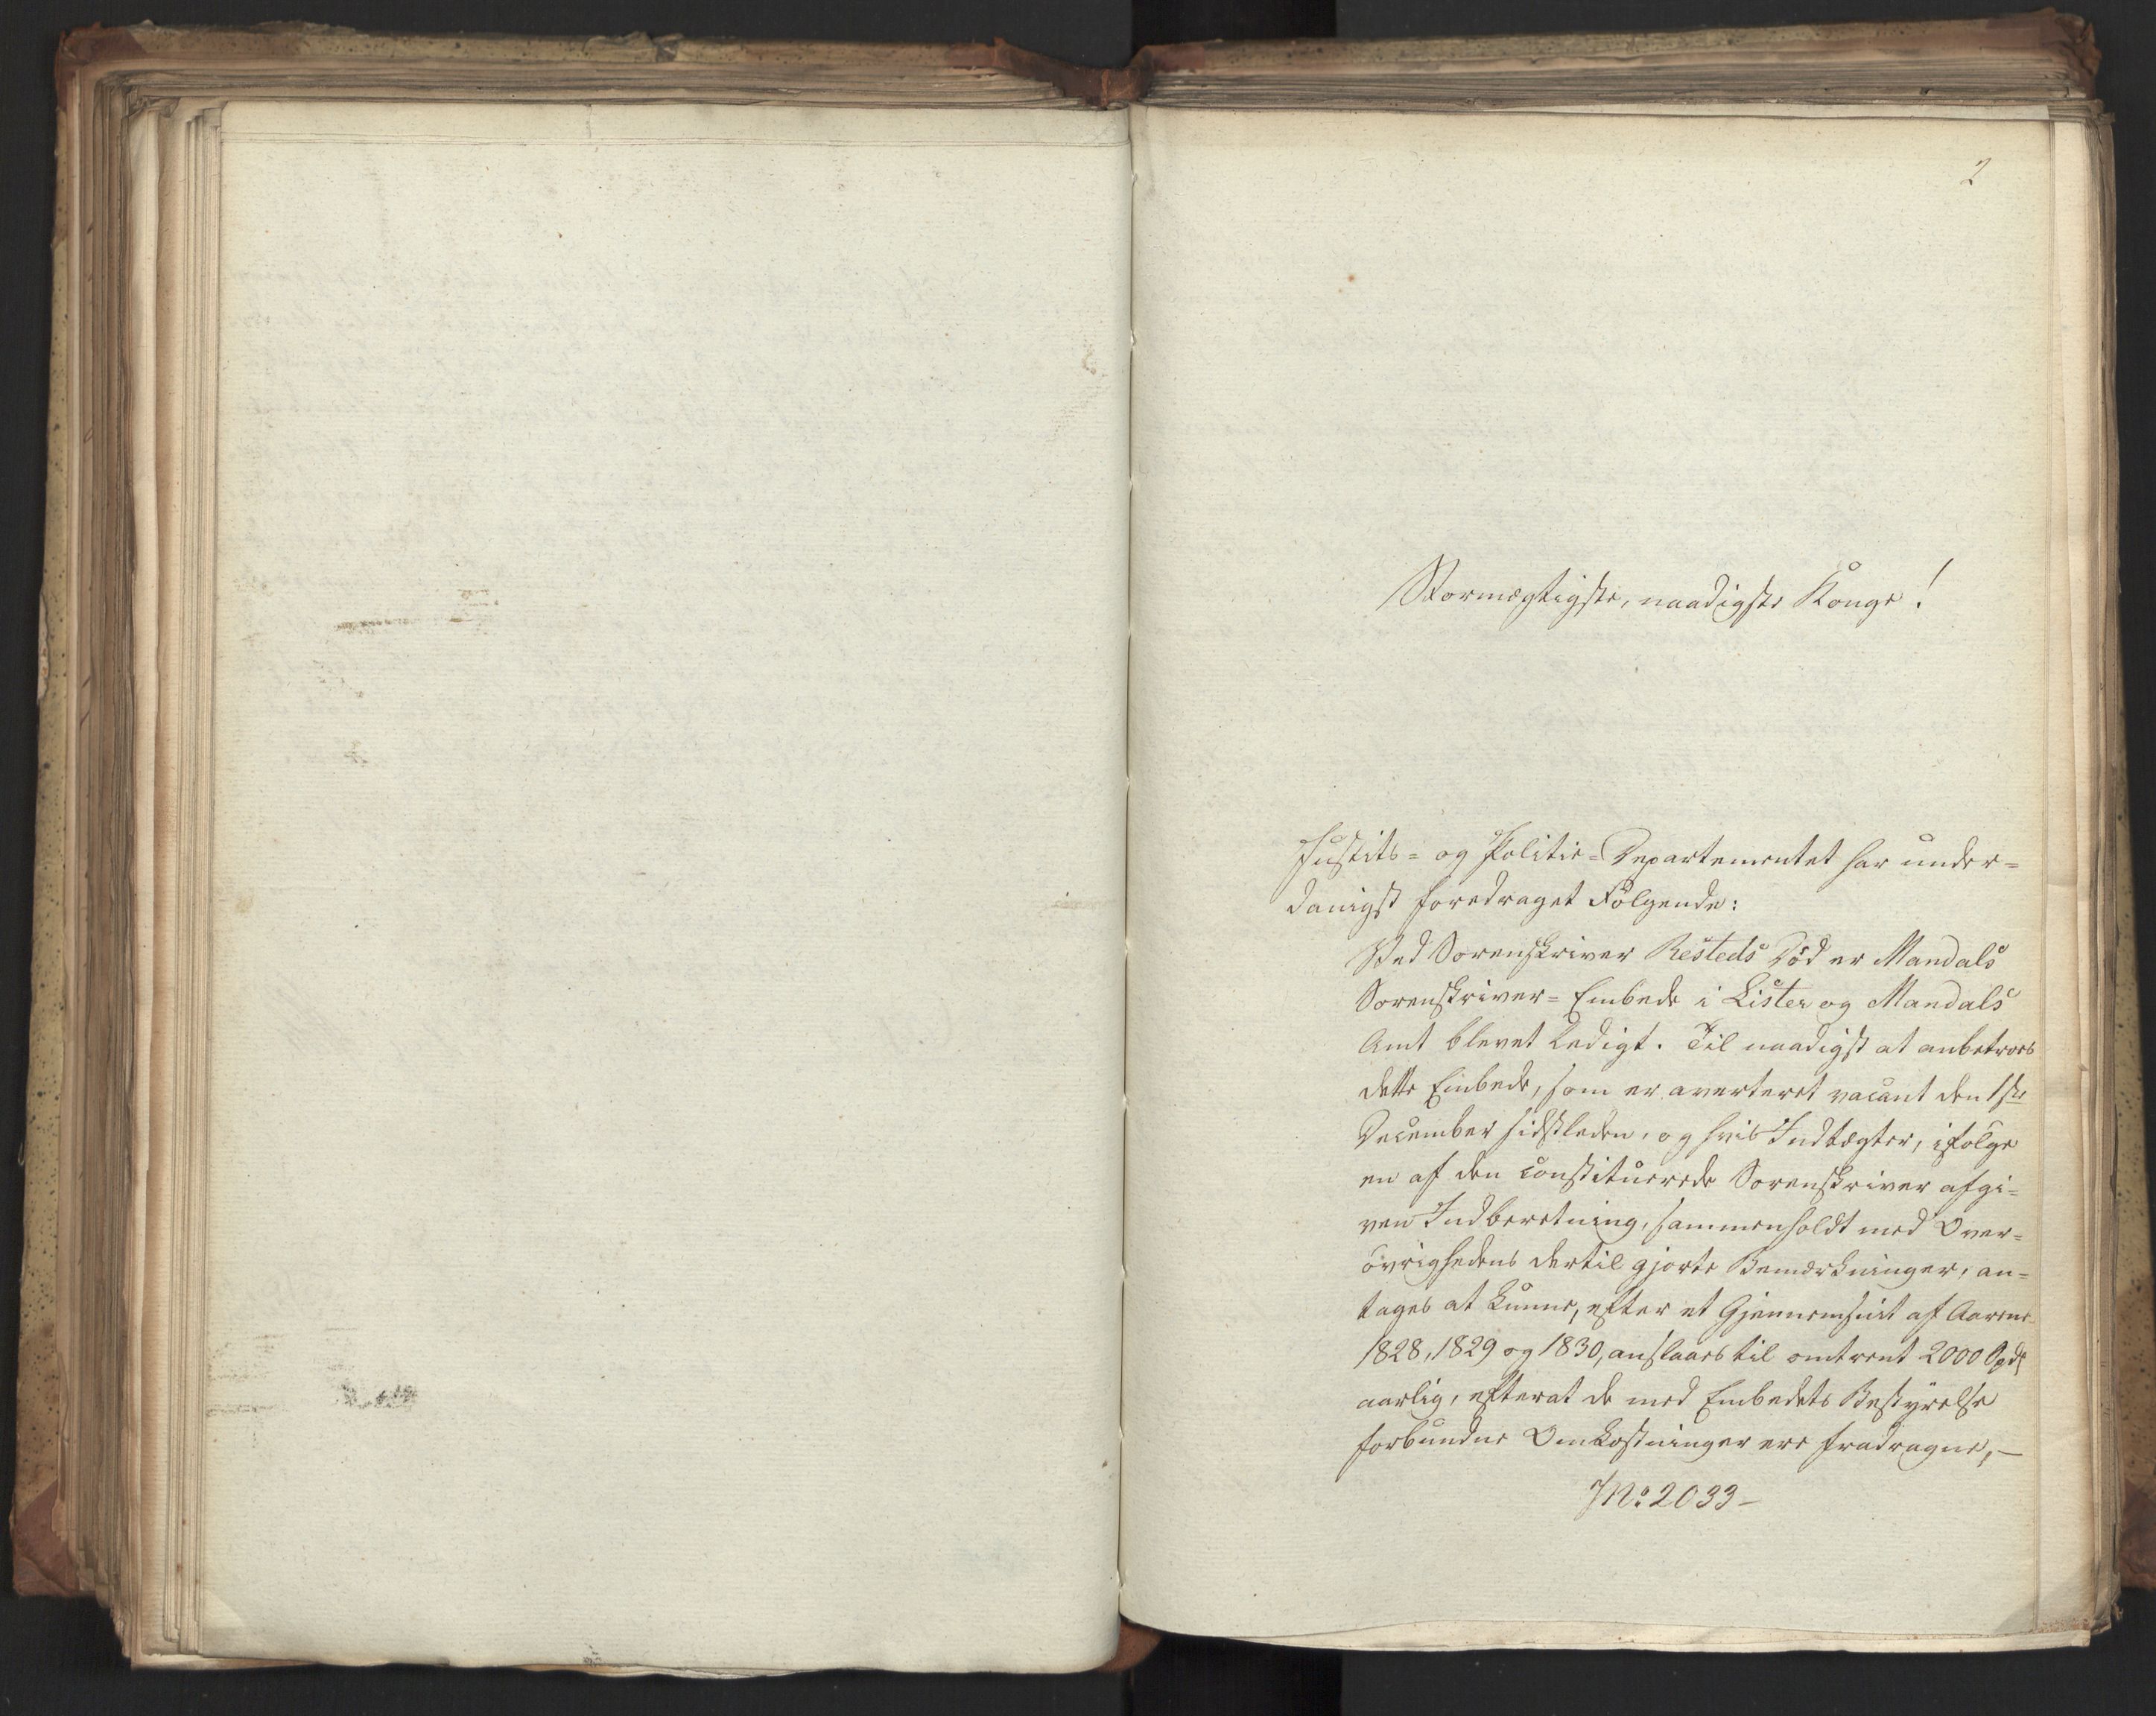 2
Stormægtigste, naadigste Konge!
Justits- og Politie-Departementet har under=
danigst foredraget Følgende:
Ved Sorenskriver Resteds Død er Mandals
Sorenskriver-Embede i Lister og Mandals
Amt blevet ledigt. Til naadigst at anbetroes
dette Embede, som er averteret vacant den 1ste
December sidstleden, og hvis Indtægter, ifølge
en af den constituerede Sorenskriver afgi=
ven Indberetning, sammenholdt med Over=
øvrighedens dertil gjorte Bemærkninger, an=
tages at kunne, efter et Gjennemsnit af Aarene
1828, 1829 og 1830, anslaaes til omtrent 2000 Spd
aarlig, efterat de med Embedets Bestyrelse
forbundne Omkostninger ere fradragne, —
No 2033-